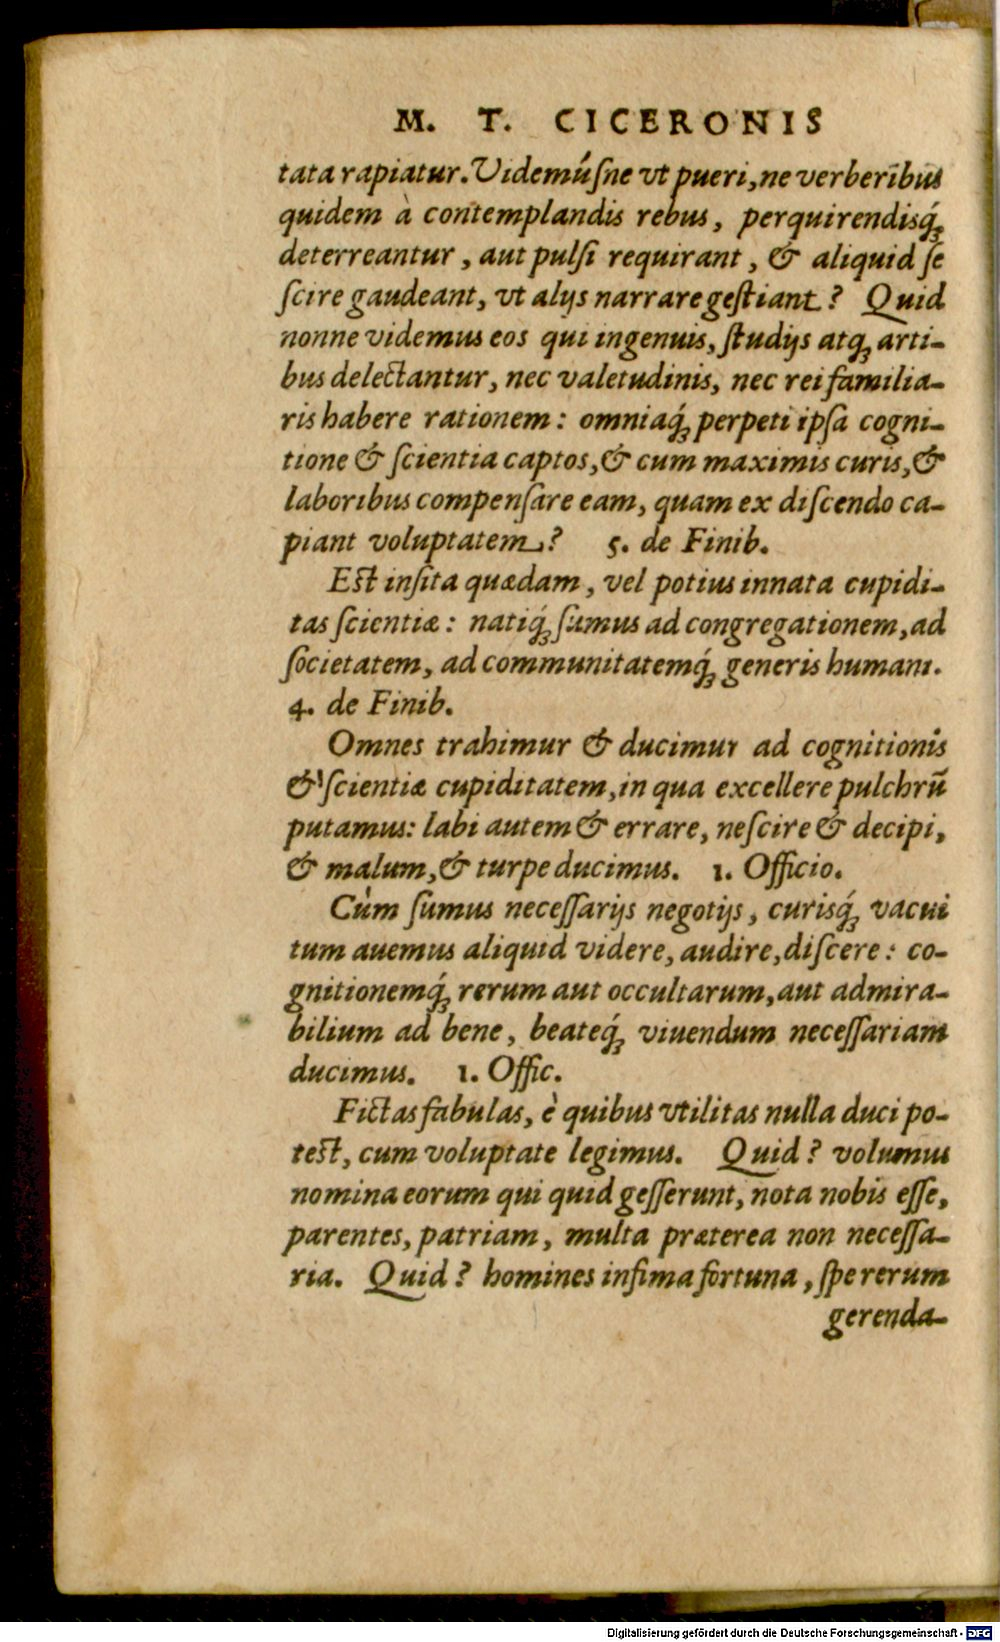 M. T. CICERONIS
tata rapiatur. Videmúſne vt pueri, ne verberibus
quidem à contemplandis rebus, perquirendisq́;
deterreantur, aut pulſi requirant, & aliquid ſe
ſcire gaudeant, vt alijs narrare geſtiant? Quid
nonne videmus eos qui ingenuis, ſtudijs atq; arti-
bus delectantur, nec valetudinis, nec rei familia-
ris habere rationem: omniaq́; perpeti ipſa cogni-
tione & ſcientia captos, & cum maximis curis, &
laboribus compenſare eam, quam ex diſcendo ca-
piant voluptatem? 5. de Finib.
Eſt inſita quædam, vel potius innata cupidi-
tas ſcientiæ: natiq́; ſumus ad congregationem, ad
ſocietatem, ad communitatemq́; generis humani.
4. de Finib.
Omnes trahimur & ducimur ad cognitionis
& ſcientiæ cupiditatem, in qua excellere pulchrū
putamus: labi autem & errare, neſcire & decipi,
& malum, & turpe ducimus. 1. Officio.
Cùm ſumus neceſſarijs negotijs, curisq́; vacui
tum auemus aliquid videre, audire, diſcere: co-
gnitionemq́; rerum aut occultarum, aut admira-
bilium ad bene, beateq́; viuendum neceſſariam
ducimus. 1. Offic.
Fictas fabulas, è quibus vtilitas nulla duci po-
teſt, cum voluptate legimus. Quid? volumus
nomina eorum qui quid geſſerunt, nota nobis eſſe,
parentes, patriam, multa præterea non neceſſa-
ria. Quid? homines infima fortuna, ſpe rerum
gerenda-
Digitalisierung gefördert durch die Deutsche Forschungsgemeinschaft - DFG